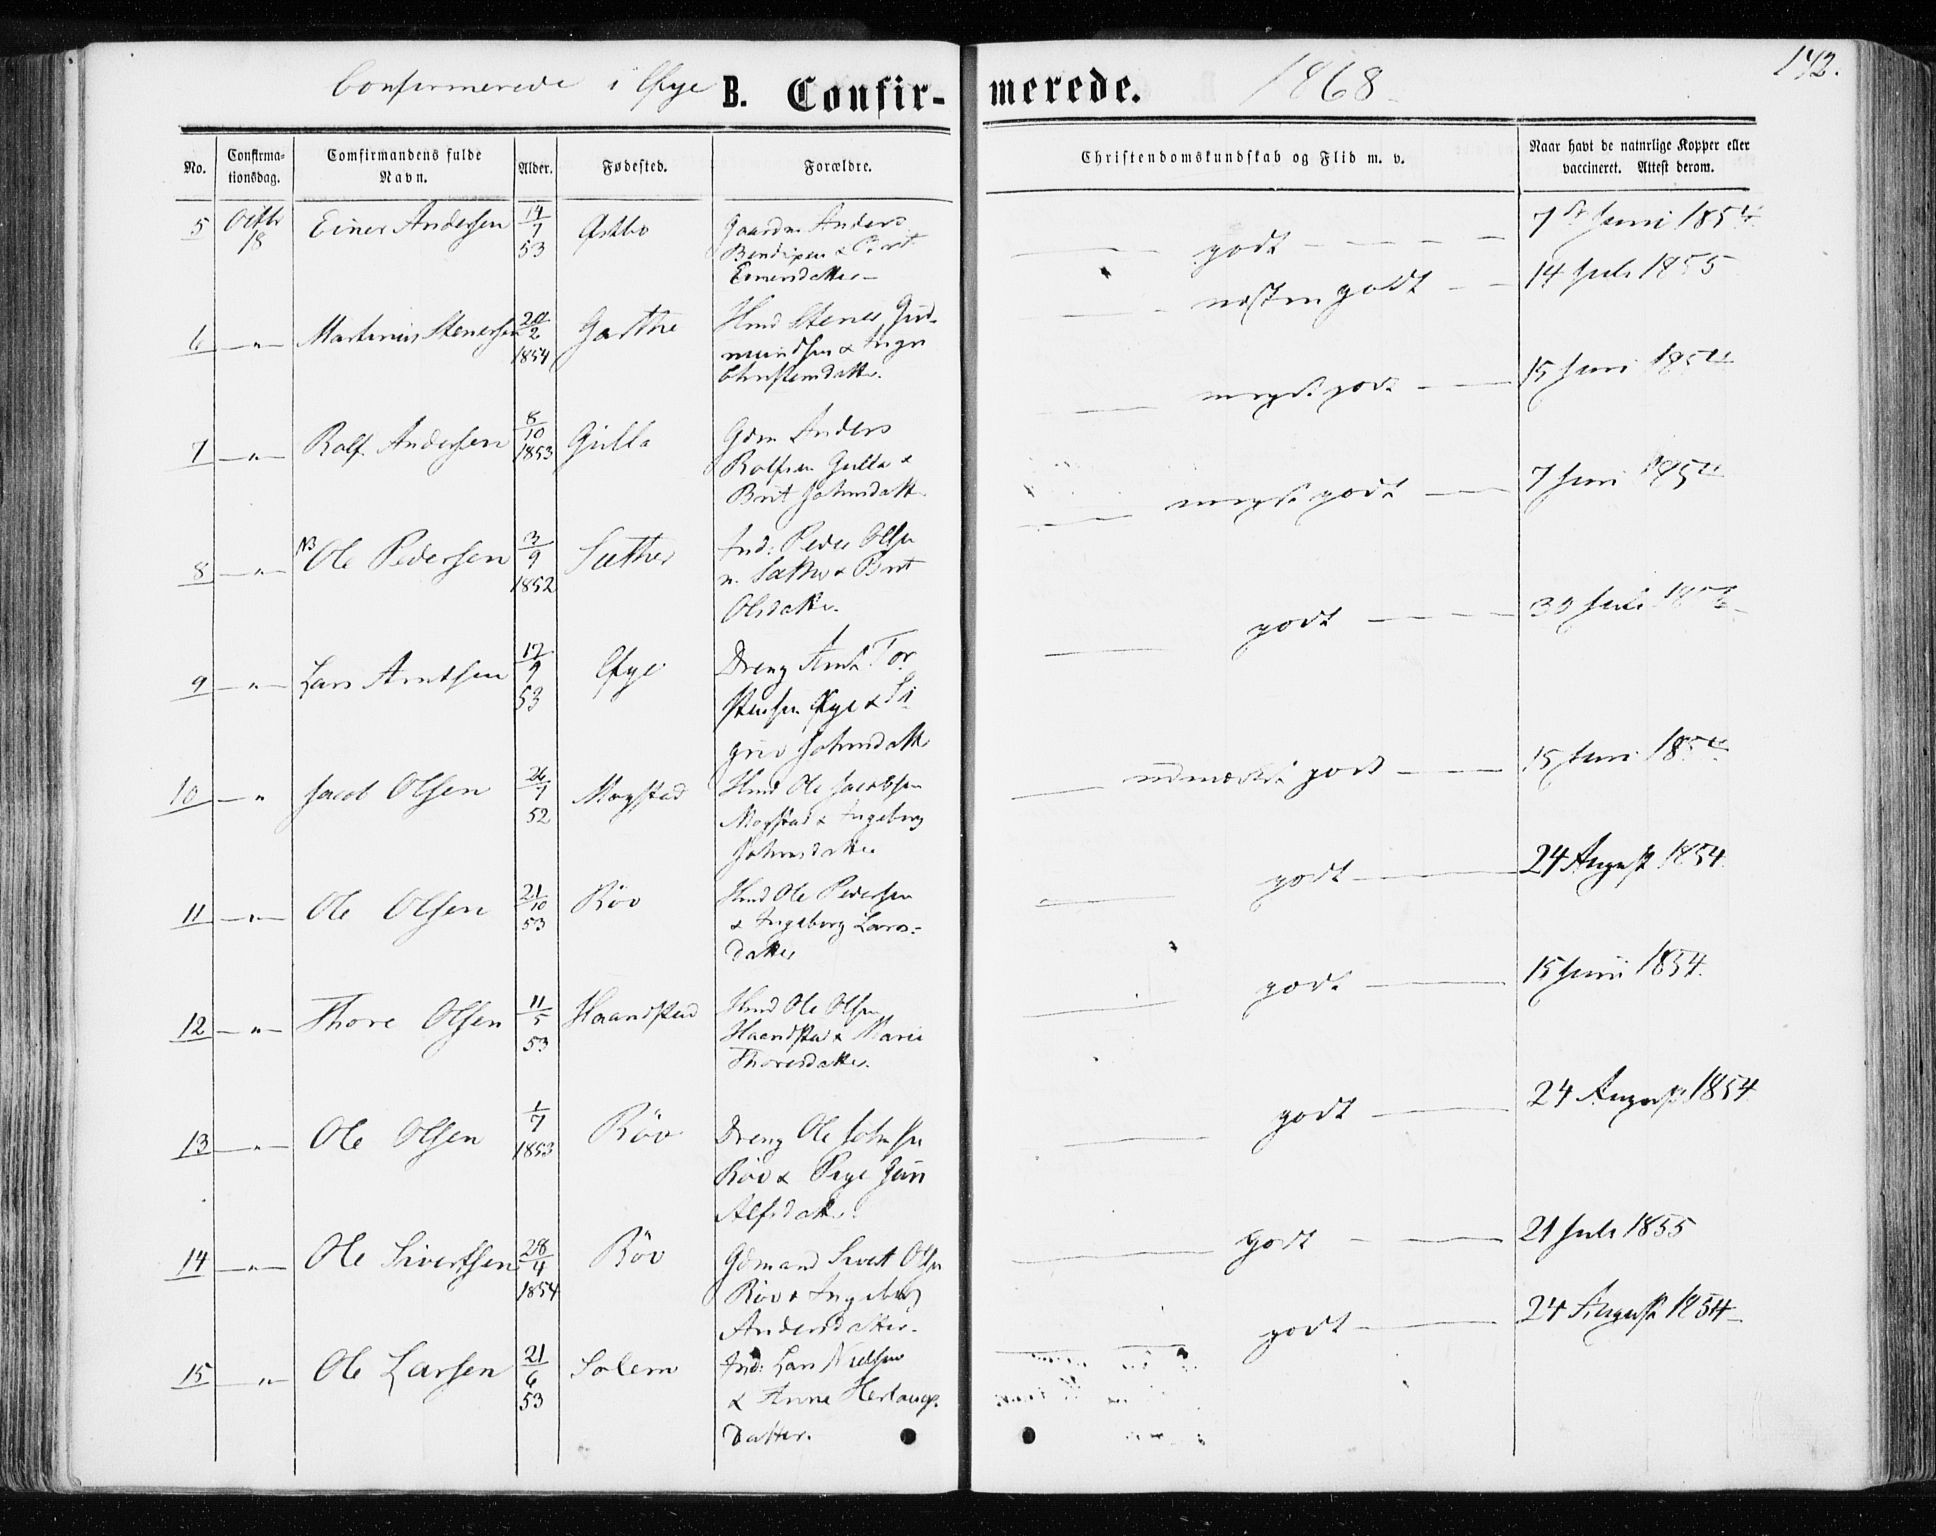 Confirmerede i Øye B. Confir- merede. 1868 142.
No. Confirma- Comfirmandens fulde Alder. Fødested. Forældre. Christendomskundskab og Flid m. v. Naar havt de naturlige Kopper eller
tionsdag. Navn. vaccineret. Attest derom.
5 Octbr Einer Andersen 14 Østbø Gaardm. Anders godt 7de Juni 1854
18 7 Bendixen & Brit
53 Einersdatter
6 — " — Martinus Stenersen 20 Garthe Hmd Stener Gud- næsten godt 14 Juli 1855
2 mundsen & Ingr
1854 Christensdatter
7 — " — Rolf Andersen 8 Gulla Gdm Anders meget godt 15 Juni 1854
10 Rolfsen Gulla &
1853 Brit Johnsdatt.
8 — " — NB Ole Pedersen 3 Sæther Ind: Peder Olsen meget godt 7 Juni 1854
9 Sætther & Brit
1852 Olsdatter
9 — " — Lars Arntsen 17 Øye Dreng Arnt Tor- godt 30 Juli
9 stensen Øye & Si
53 grid Johnsdatt
10 — " Jacob Olsen 26 Mogstad Hmd Ole Jacobsen udmærket godt 15 Juni 1854
7 Mogstad & Ingeborg
52 Johnsdatter
11 — " — Ole Olsen 21 Röv Hmd Ole Pedersen godt 24 August 1854
10 & Ingeborg Lars-
53 datter
12 — " — Thore Olsen 11 Haandstad Hmd Ole Olsen godt 15 Juni 1854.
5 Haandstad & Marie
53 Thoresdatter.
13 — " — Ole Olsen 1 Röv Dreng Ole Johnsen godt 24 August 1854
7 Röv & Pige Guri
1853 Alfsdatter
14 — " — Ole Sivertsen 28 Röv Gdmand Sivert Olsen Godt 21 Juli 1855
4 Röv & Ingeborg
1854 Andersdatter
15 — " — Ole Larsen 21 Solem Ind: Lars Nielsen godt 24 August 1854
6 & Anne Herlaugs-
53 datter.